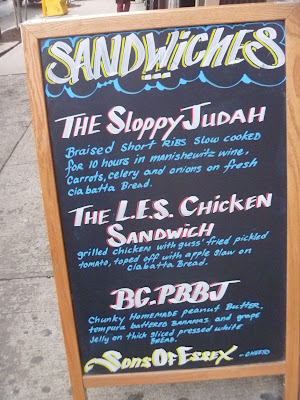 SANDWICHES
THE SLOPPY JUDAH
Braised Short Ribs slow cooked
for 10 hours in manishewitz wine.
Carrots, celery and onions on fresh
ciabatta Bread.
THE L.E.S. CHICKEN
SANDWICH
grilled chicken with guss' fried pickled
tomato, toped off with apple slaw on
ciabatta Bread.
BG.PBBJ
Chunky Homemade peanut Butter,
tempura battered Bananas and grape
Jelly on thick sliced pressed white
BREAD.
SONS OF ESSEX